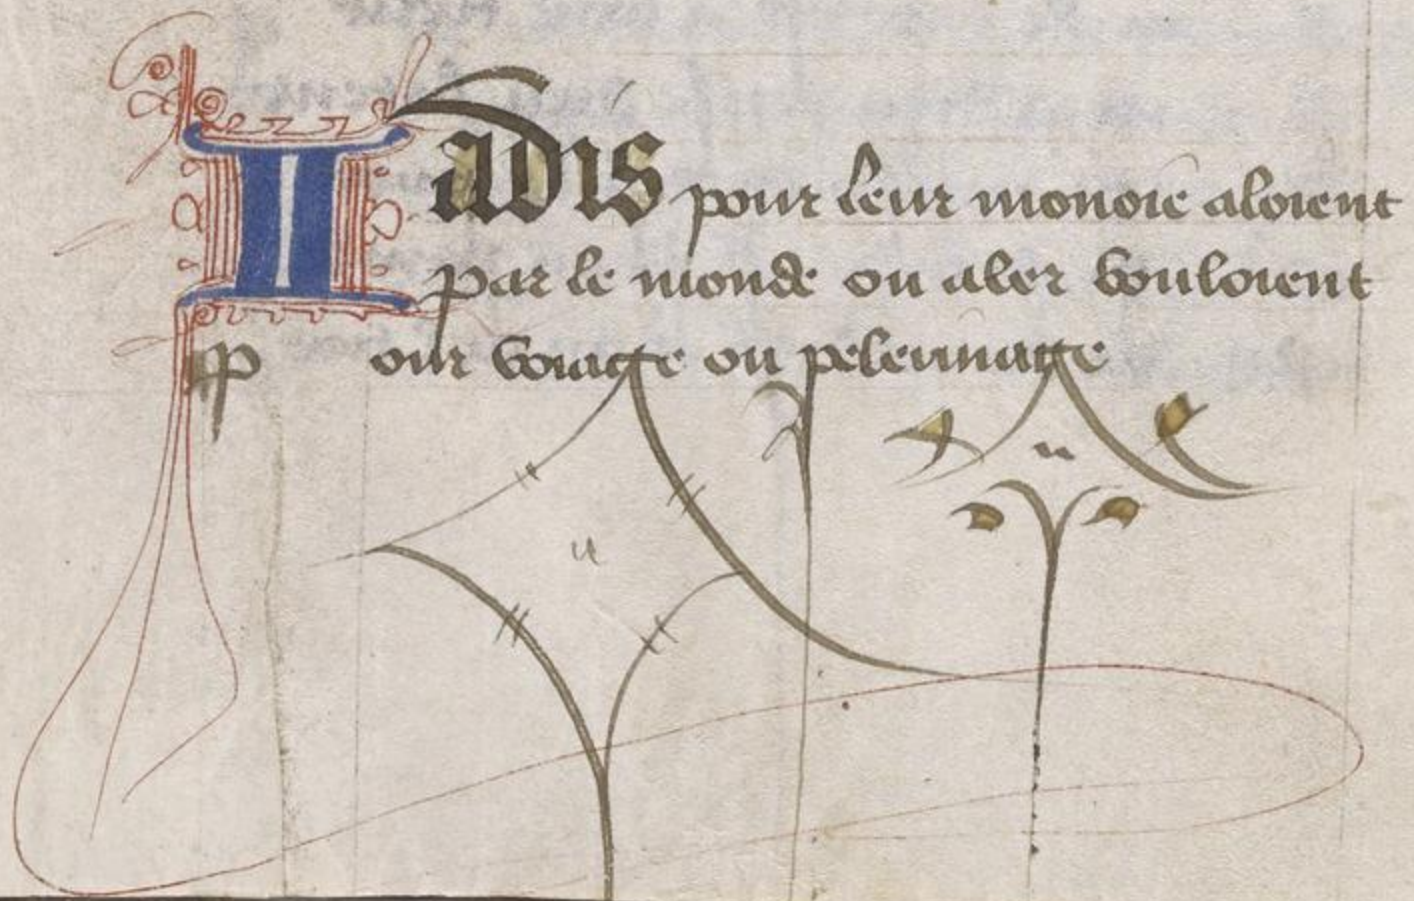 Iadis pour leur monoie aloient
par le monde ou aler vouloient
Pour voiage ou pelerinage